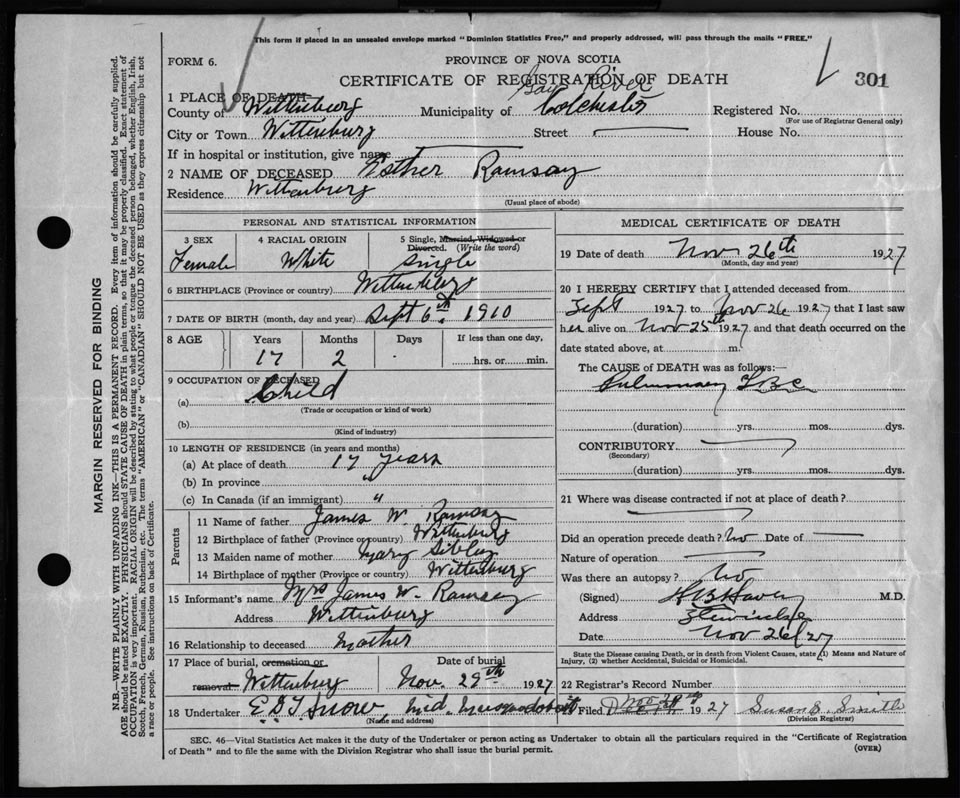 This form if placed in an unsealed envelope marked "Dominion Statistics Free," and properly addressed, will pass through the mails "FREE."
FORM 6.
PROVINCE OF NOVA SCOTIA
CERTIFICATE OF REGISTRATION OF DEATH
301
Gay River
1 PLACE OF DEATH
County of Wittenburg Municipality of Colchester Registered No.
(For use of Registrar General only)
City or Town Wittenburg Street House No.
If in hospital or institution, give name
2 NAME OF DECEASED Ramsay
Residence Wittenburg
(Usual place of abode)
PERSONAL AND STATISTICAL INFORMATION
3 SEX 4 RACIAL ORIGIN 5 Single, Married, Widowed or Divorced. (Write the word)
Female White Single
6 BIRTHPLACE (Province or country) Wittenburg
7 DATE OF BIRTH (month, day and year) Sept 6th 1910
8 AGE Years Months Days If less than one day,
17 2 hrs. or min.
9 OCCUPATION OF DECEASED
(a) Child
(Trade or occupation or kind of work)
(b)
(Kind of industry)
10 LENGTH OF RESIDENCE (in years and months)
(a) At place of death 17 years
(b) In province "
(c) In Canada (if an immigrant) "
Parents
11 Name of father James W. Ramsay
12 Birthplace of father (Province or country) Wittenburg
13 Maiden name of mother Mary Sibley
14 Birthplace of mother (Province or country) Wittenburg
15 Informant's name Mrs James W. Ramsay
Address Wittenburg
16 Relationship to deceased Mother
17 Place of burial, cremation or removal Wittenburg Date of burial Nov. 29th 1927
18 Undertaker E D T Snow, Mid. Musquodoboit
(Name and address)
MEDICAL CERTIFICATE OF DEATH
19 Date of death Nov 26th 1927
(Month, day and year)
20 I HEREBY CERTIFY that I attended deceased from
Sept 1927 to Nov 26 1927 that I last saw
her alive on Nov 25th 1927 and that death occurred on the
date stated above, at m.
The CAUSE of DEATH was as follows:—
Pulmonary TBC
(duration) yrs. mos. dys.
CONTRIBUTORY
(Secondary)
(duration) yrs. mos. dys.
21 Where was disease contracted if not at place of death?
Did an operation precede death? No Date of
Nature of operation
Was there an autopsy? No
(Signed) M.D.
Address Stewiacke
Date Nov 26/27
State the Disease causing Death, or in death from Violent Causes, state (1) Means and Nature of
Injury, (2) whether Accidental, Suicidal or Homicidal.
22 Registrar's Record Number
Filed 1927 Susan S. Smith
(Division Registrar)
SEC. 46—Vital Statistics Act makes it the duty of the Undertaker or person acting as Undertaker to obtain all the particulars required in the "Certificate of Registration
of Death" and to file the same with the Division Registrar who shall issue the burial permit.
(OVER)
MARGIN RESERVED FOR BINDING
N.B.—WRITE PLAINLY WITH UNFADING INK—THIS IS A PERMANENT RECORD. Every item of information should be carefully supplied.
AGE should be stated EXACTLY. PHYSICIANS should STATE CAUSE OF DEATH in plain terms, so that it may be properly classified. Exact statement of
OCCUPATION is very important. RACIAL ORIGIN will be described by stating to what people or tongue the deceased person belonged, whether English, Irish,
Scotch, French, German, Russian, Ruthenian, etc. The terms "AMERICAN" or "CANADIAN" SHOULD NOT BE USED as they express citizenship but not
a race or people. See instructions on back of Certificate.